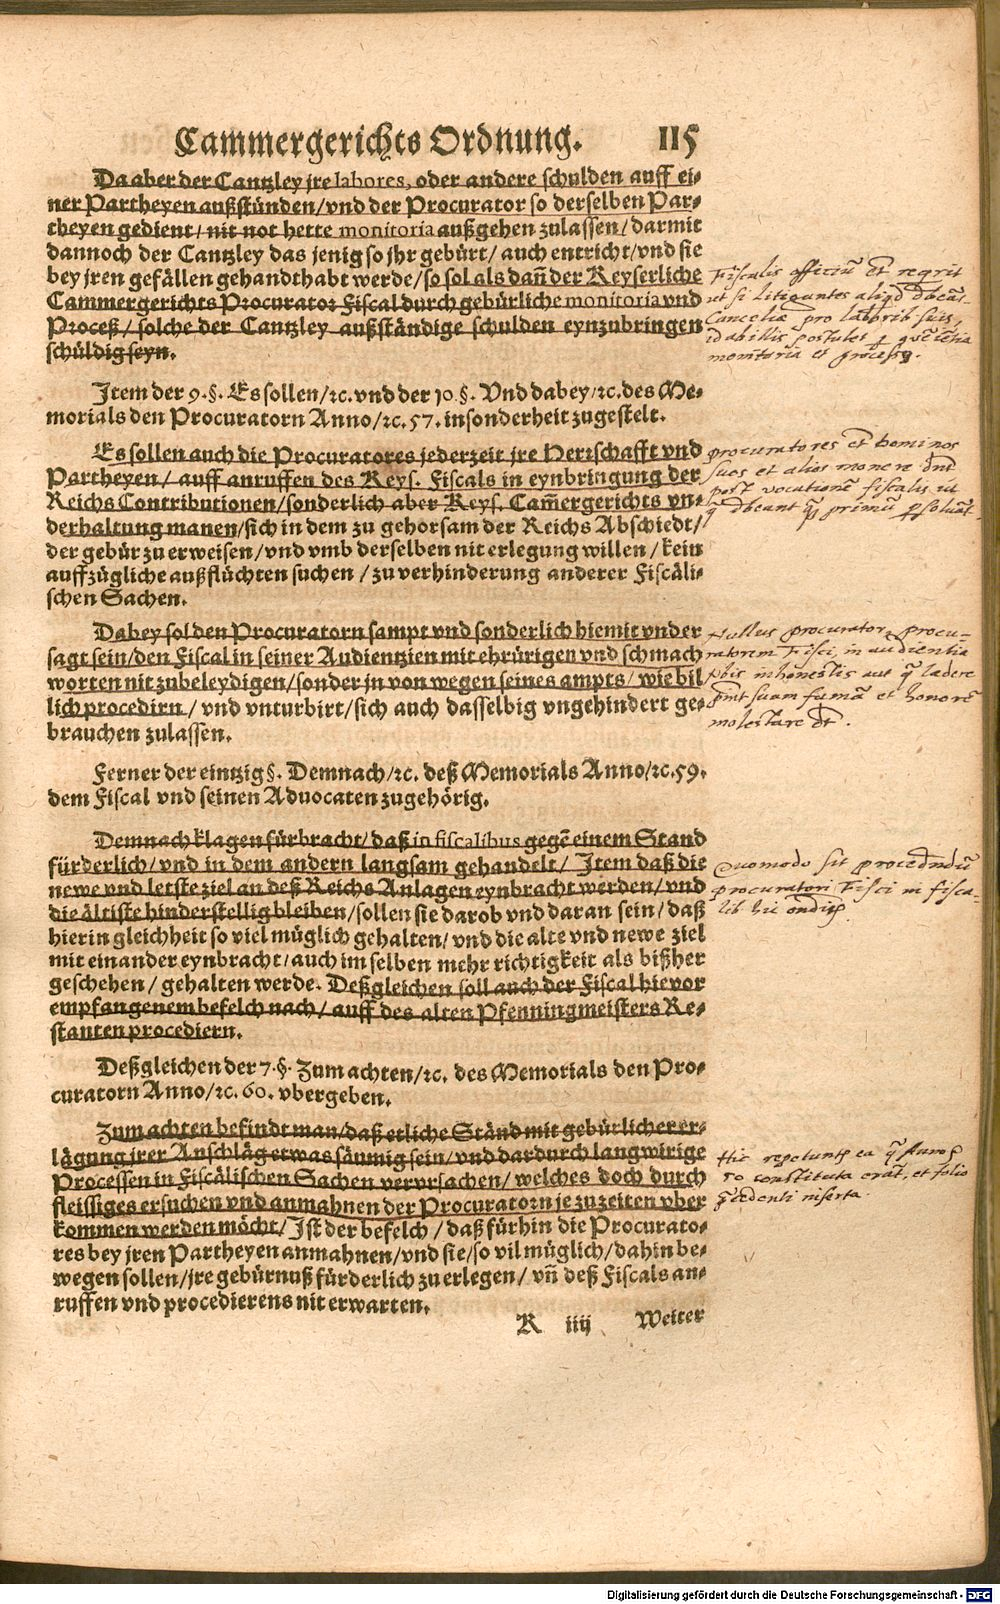 Cammergerichts Ordnung. 115
Da aber der Cantzley jre labores, oder andere schulden auff ei-
ner Partheyen außstünden/vnd der Procurator so derselben Par-
theyen gedient/nit not hette monitoria außgehen zulassen/darmit
dannoch der Cantzley das jenig so jhr gebürt/auch entricht/vnd sie
bey jren gefällen gehandthabt werde/so sol als dañ der Keyserliche
Cammergerichts Procurator Fiscal durch gebürliche monitoria vnd
Proceß/solche der Cantzley außständige schulden eynzubringen
schüldig seyn.
Fiscalis officiũ est
ut si litigantes
Cancelia pro laborib suis,
monitoria et
Item der 9.§. Es sollen/ꝛc. vnd der 10.§. Vnd dabey/ꝛc. des Me-
morials den Procuratorn Anno/ꝛc. 57. insonderheit zugestelt.
Es sollen auch die Procuratores jederzeit jre Herrschafft vnd
Partheyen/auff anruffen des Keys. Fiscals in eynbringung der
Reichs Contributionen/sonderlich aber Keys. Cam̃ergerichts vn-
derhaltung manen/sich in dem zu gehorsam der Reichs Abschiedt/
der gebür zu erweisen/vnd vmb derselben nit erlegung willen/kein
auffzügliche außflüchten suchen/zu verhinderung anderer Fiscäli-
schen Sachen.
procuratores et dominos
suos et alios monere
post vocationẽ fiscalis ut
primũ
Dabey sol den Procuratorn sampt vnd sonderlich hiemit vnder
sagt sein/den Fiscal in seiner Audientzien mit ehrürigen vnd schmach
worten nit zubeleydigen/sonder jn von wegen seines ampts/wie bil
lich procedirn/vnd vnturbirt/sich auch dasselbig vngehindert ge-
brauchen zulassen.
Nullus procurator, procu-
ratorem Fisci, in audientia
inhonestis aut ladere
suam famã et honorẽ
molestare
Ferner der eintzig §. Demnach/ꝛc. deß Memorials Anno/ꝛc. 59.
dem Fiscal vnd seinen Aduocaten zugehörig.
Demnach klagen fürbracht/daß in fiscalibus gegẽ einem Stand
fürderlich/vnd in dem andern langsam gehandelt/Item daß die
newe vnd letste ziel an deß Reichs Anlagen eynbracht werden/vnd
die ältiste hinderstellig bleiben/sollen sie darob vnd daran sein/daß
hierin gleichheit so viel müglich gehalten/vnd die alte vnd newe ziel
mit einander eynbracht/auch im selben mehr richtigkeit als bißher
geschehen/gehalten werde. Deßgleichen soll auch der Fiscal hievor
empfangenem befelch nach/auff des alten Pfenningmeisters Re-
stanten procediern.
Quomodo sit
procuratori Fisci in fisca-
lib hic
Deßgleichen der 7.§. Zum achten/ꝛc. des Memorials den Pro-
curatorn Anno/ꝛc. 60. vbergeben.
Zum achten befindt man/daß etliche Ständ mit gebürlicher er-
lägung jrer Anschläg etwas säumig sein/vnd dardurch langwirige
Processen in Fiscälischen Sachen vervrsachen/welches doch durch
fleissiges ersuchen vnd anmahnen der Procuratorn je zu zeiten vber
kommen werden möcht/Ist der befelch/daß fürhin die Procurato-
res bey jren Partheyen anmahnen/vnd sie/so vil müglich/dahin be-
wegen sollen/jre gebürnuß fürderlich zu erlegen/vñ deß Fiscals an-
ruffen vnd procedierens nit erwarten.
Hic ea
constituta erãt, et folio
inserta.
K iiij Weiter
Digitalisierung gefördert durch die Deutsche Forschungsgemeinschaft - DFG